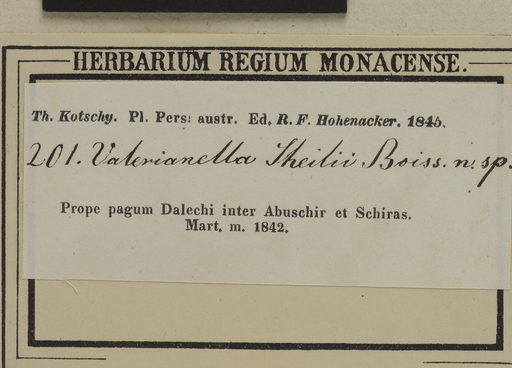 HERBARIUM REGIUM MONACENSE.
Th. Kotschy. Pl. Pers: austr. Ed, R. F. Hohenacker. 1845.
201. Valerianella Sheilii Boiss. n. sp.
Prope pagum Dalechi inter Abuschir et Schiras.
Mart, m. 1842.